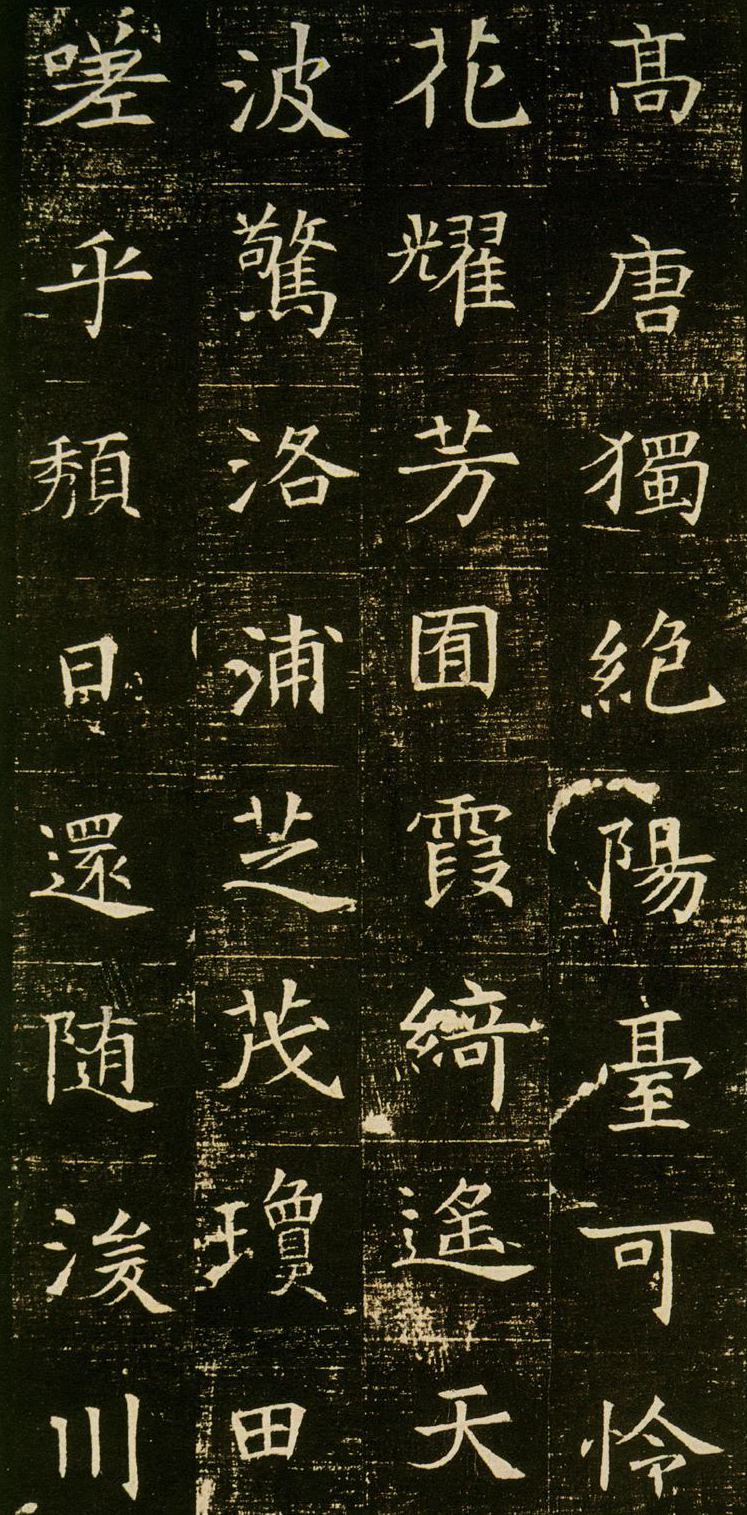 高唐獨絶陽臺可怜
花耀芳囿霞綺遙天
波驚洛浦芝茂瓊田
嗟乎頽日還随浚川